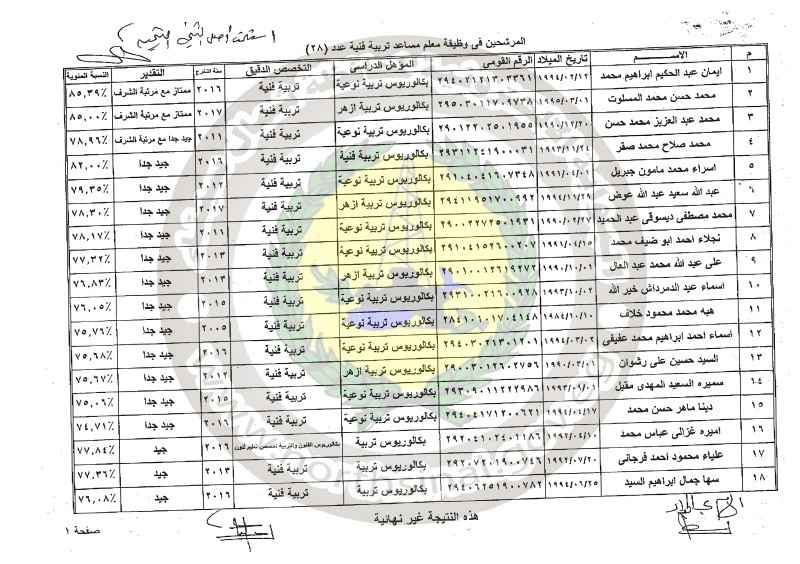 المرشحين فى وظيفة معلم مساعد تربية فنية عدد (٢٨)
م الاســـــم تاريخ الميلاد الرقم القومى المؤهل الدراسى التخصص الدقيق سنة التخرج التقدير النسبة المئوية
١ ايمان عبد الحكيم ابراهيم محمد ١٩٩٤/٠٢/١٢ ٢٩٤٠٢١٢١٣٠٣٣٦١ بكالوريوس تربية نوعية تربية فنية ٢٠١٦ ممتاز مع مرتبة الشرف ٨٥,٣٩٪
٢ محمد حسن محمد المسلوت ١٩٩٥/٠٣/٠١ ٢٩٥٠٣٠١١٧٠٩٧٣٨ بكالوريوس تربية ازهر تربية فنية ٢٠١٧ ممتاز مع مرتبة الشرف ٨٥,٠٠٪
٣ محمد عبد العزيز محمد حسن ١٩٩٠/١٢/٢٠ ٢٩٠١٢٢٠٢٥٠١٩٥٥ بكالوريوس تربية نوعية تربية فنية ٢٠١١ جيد جدا مع مرتبة الشرف ٧٨,٩٦٪
٤ محمد صلاح محمد صقر ١٩٩٣/١١/٢٤ ٢٩٣١١٢٤١٩٠٠٠٣١ بكالوريوس تربية فنية تربية فنية ٢٠١٦ جيد جدا ٨٢,٠٠٪
٥ اسراء محمد مامون جبريل ١٩٩١/٠٤/٠١ ٢٩١٠٤٠٤١٦٠٧٣٤٨ بكالوريوس تربية نوعية تربية فنية ٢٠١٢ جيد جدا ٧٩,٣٥٪
٦ عبد الله سعيد عبد الله عوض ١٩٩٤/١١/٢٩ ٢٩٤١١٩٥١٧٠٠٩٩٢ بكالوريوس تربية ازهر تربية فنية ٢٠١٧ جيد جدا ٧٨,٣٠٪
٧ محمد مصطفى ديسوقى عبد الحميد ١٩٩٠/٠٢/٢٧ ٢٩٠٠٢٢٧٢٥٠١٩٣١ بكالوريوس تربية نوعية تربية فنية ٢٠١١ جيد جدا ٧٨,١٧٪
٨ نجلاء احمد ابو ضيف محمد ١٩٩١/٠٤/١٥ ٢٩١٠٤١٥٢٦٠٠٢٠٧ بكالوريوس تربية نوعية تربية فنية ٢٠١٣ جيد جدا ٧٧,٣٢٪
٩ على عبد الله محمد عبد العال ١٩٩٠/١٠/٠١ ٢٩٠١٠٠١٢٦١٩٢٧٢ بكالوريوس تربية ازهر تربية فنية ٢٠١٣ جيد جدا ٧٦,٨٣٪
١٠ اسماء عبد الدمرداش خير الله ١٩٩٣/١٠/٠٢ ٢٩٣١٠٠٢١٦٠٠٩٢٨ بكالوريوس تربية نوعية تربية فنية ٢٠١٥ جيد جدا ٧٦,٠٥٪
١١ هبه محمد محمود خلاف ١٩٨٤/١٠/١٠ ٢٨٤١٠١٠١٧٠٤١٤٨ بكالوريوس تربية نوعية تربية فنية ٢٠٠٥ جيد جدا ٧٥,٧٦٪
١٢ اسماء احمد ابراهيم محمد عفيفى ١٩٩٤/٠٣/٠٢ ٢٩٤٠٣٠٢١٣٠١٢٠١ بكالوريوس تربية نوعية تربية فنية ٢٠١٦ جيد جدا ٧٥,٦٨٪
١٣ السيد حسين على رشوان ١٩٩٠/٠٣/٠١ ٢٩٠٠٣٠١٢٦٠٢٧٥٦ بكالوريوس تربية ازهر تربية فنية ٢٠١٢ جيد جدا ٧٥,٦٧٪
١٤ سميره السعيد المهدى مقبل ١٩٩٣/٠٩/٠١ ٢٩٣٠٩٠١١٢٢٢٩٨٦ بكالوريوس تربية نوعية تربية فنية ٢٠١٥ جيد جدا ٧٥,٠٦٪
١٥ دينا ماهر حسن محمد ١٩٩٤/٠٤/١٧ ٢٩٤٠٤١٧١٢٠٠٦٢١ بكالوريوس تربية نوعية تربية فنية ٢٠١٦ جيد جدا ٧٤,٧١٪
١٦ اميره غزالى عباس محمد ١٩٩٢/٠٤/١٠ ٢٩٢٠٤١٠٢٤٠١١٨٦ بكالوريوس تربية بكالوريوس الفنون والتربية تخصص تعليم فنون ٢٠١٦ جيد ٧٧,٨٤٪
١٧ علياء محمود احمد فرجانى ١٩٩٢/٠٧/٢٠ ٢٩٢٠٧٢٠١٩٠٠٧٤٦ بكالوريوس تربية تربية فنية ٢٠١٣ جيد ٧٧,٣٦٪
١٨ سها جمال ابراهيم السيد ١٩٩٤/٠٦/٢٥ ٢٩٤٠٦٢٥١٩٠٠٧٨٢ بكالوريوس تربية تربية فنية ٢٠١٦ جيد ٧٦,٠٨٪
هذه النتيجة غير نهائية
صفحة ١